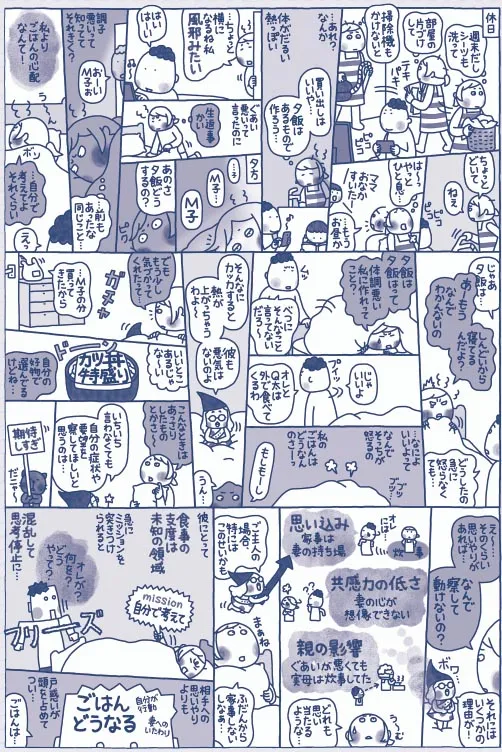 休日
週末だし
シーツも
洗って
部屋の
片づけ
して
掃除機も
かけないと
テキ
パキ
ピコ
ピコ
…あれ?
なんか
体がだるい
熱っぽい
…ちょっと
横に
なるね私
風邪みたい
はい
はーい
調子
悪いって
知ってて
それきく?
おーい
M子ぉ
私より
ごはんの心配
なんて!
ちょっと
どいて
ねえ
はーっ
ひと息…
ママ
おなか
すいたー
…もう
お昼か
ピコ
ピコ
買い出しは
いいや
夕飯は
あるもので
作ろう…
ぐあい
悪いって
言ったのに
生返事
かい
夕方
M子…
M子
…ん
あのさ
夕飯どう
するの?
…前も
あったな
同じこと…
ボソ
…自分で
考えてよ
それくらい
えっ
じゃあ
夕飯は…
あーもう
なんで
わかんないの
しんどいから
寝てる
んだよ?
どうしたの
急に
怒らなく
ても…
夕飯は
夕飯はって
体調悪い
私に作れって
こと?
べつに
そんなこと
言ってない
だろ〜
いいよ
じゃ
オレと
Q太は
外で食べて
くるわ
プイッ
…なによ
いいよって
なんで
そっちが
怒るの
ブツ
ブツ…
私の
ごはんは
どうなん
のさーっ
もーもーし
そんなに
カッカすると
熱が
上がっちゃう
わよ〜
彼も
悪気は
ないのよ
うん…
ガチャ
…M子の分
買って
きたから
でも
もう少し
気づかって
くれたって…
あらいいとこ
あるじゃ
ない
ドーン
カツ丼
特盛り
自分の
好物で
選んでる
けどね…
こんなときは
あっさり
したもの
とかさ
いちいち
言わなくても
自分の症状や
要望を
察してほしいと
思うのは…
期待
しすぎ
だこー
そのくらい
思いやりが
あれば…
なんで
察して
動けないの?
それには
いくつかの
理由が!
ボワ
思い込み
家事は
妻の持ち場
オレ
に…
炊
事
共感力の低さ
妻の心が
想像できない
親の影響
ぐあいが悪くても
実母は炊事してた
どれも
思い
当たる
ような…
う〜む
ご主人の
場合
特には
このせいかも
まぁね
ふだんから
家事
しない
し
彼にとって
食事の
支度は
未知の領域
急に
ミッションを
突きつけ
られると
mission
自分で考えて
混乱して
思考停止に…
オレが?
何を?
どう
やって?
フリーズ
相手への
思いやり
よりも
自分が
行動
妻への
いたわり
ごはん
どうなる
戸惑いが
頭を占めて
つい…
ごはんは…